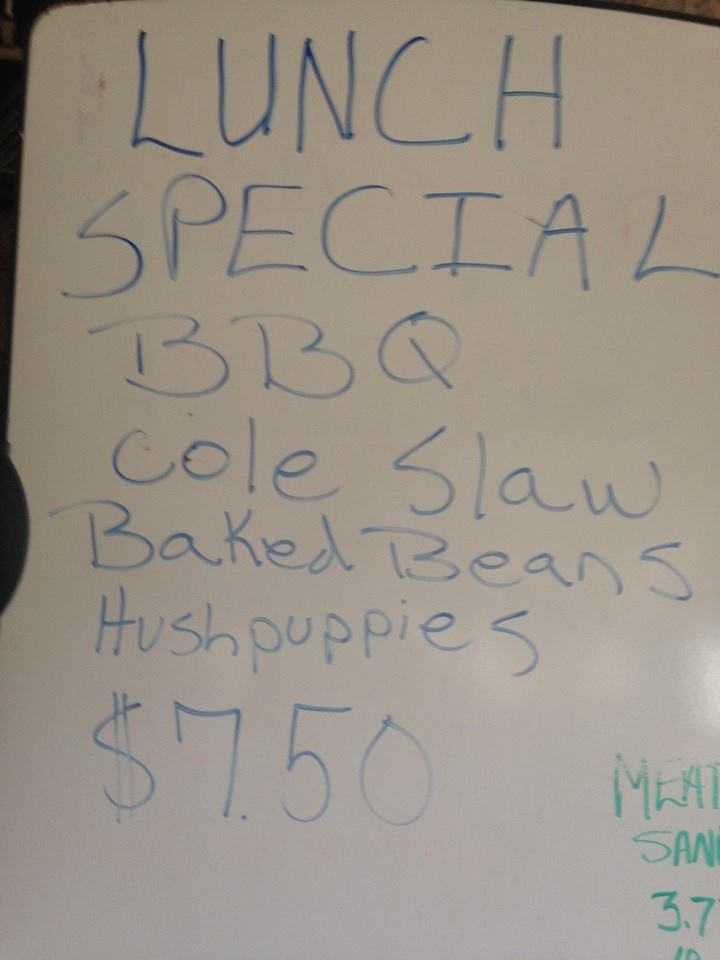 LUNCH
SPECIAL
BBQ
Cole Slaw
Baked Beans
Hushpuppies
$7.50
MEAT
3.7